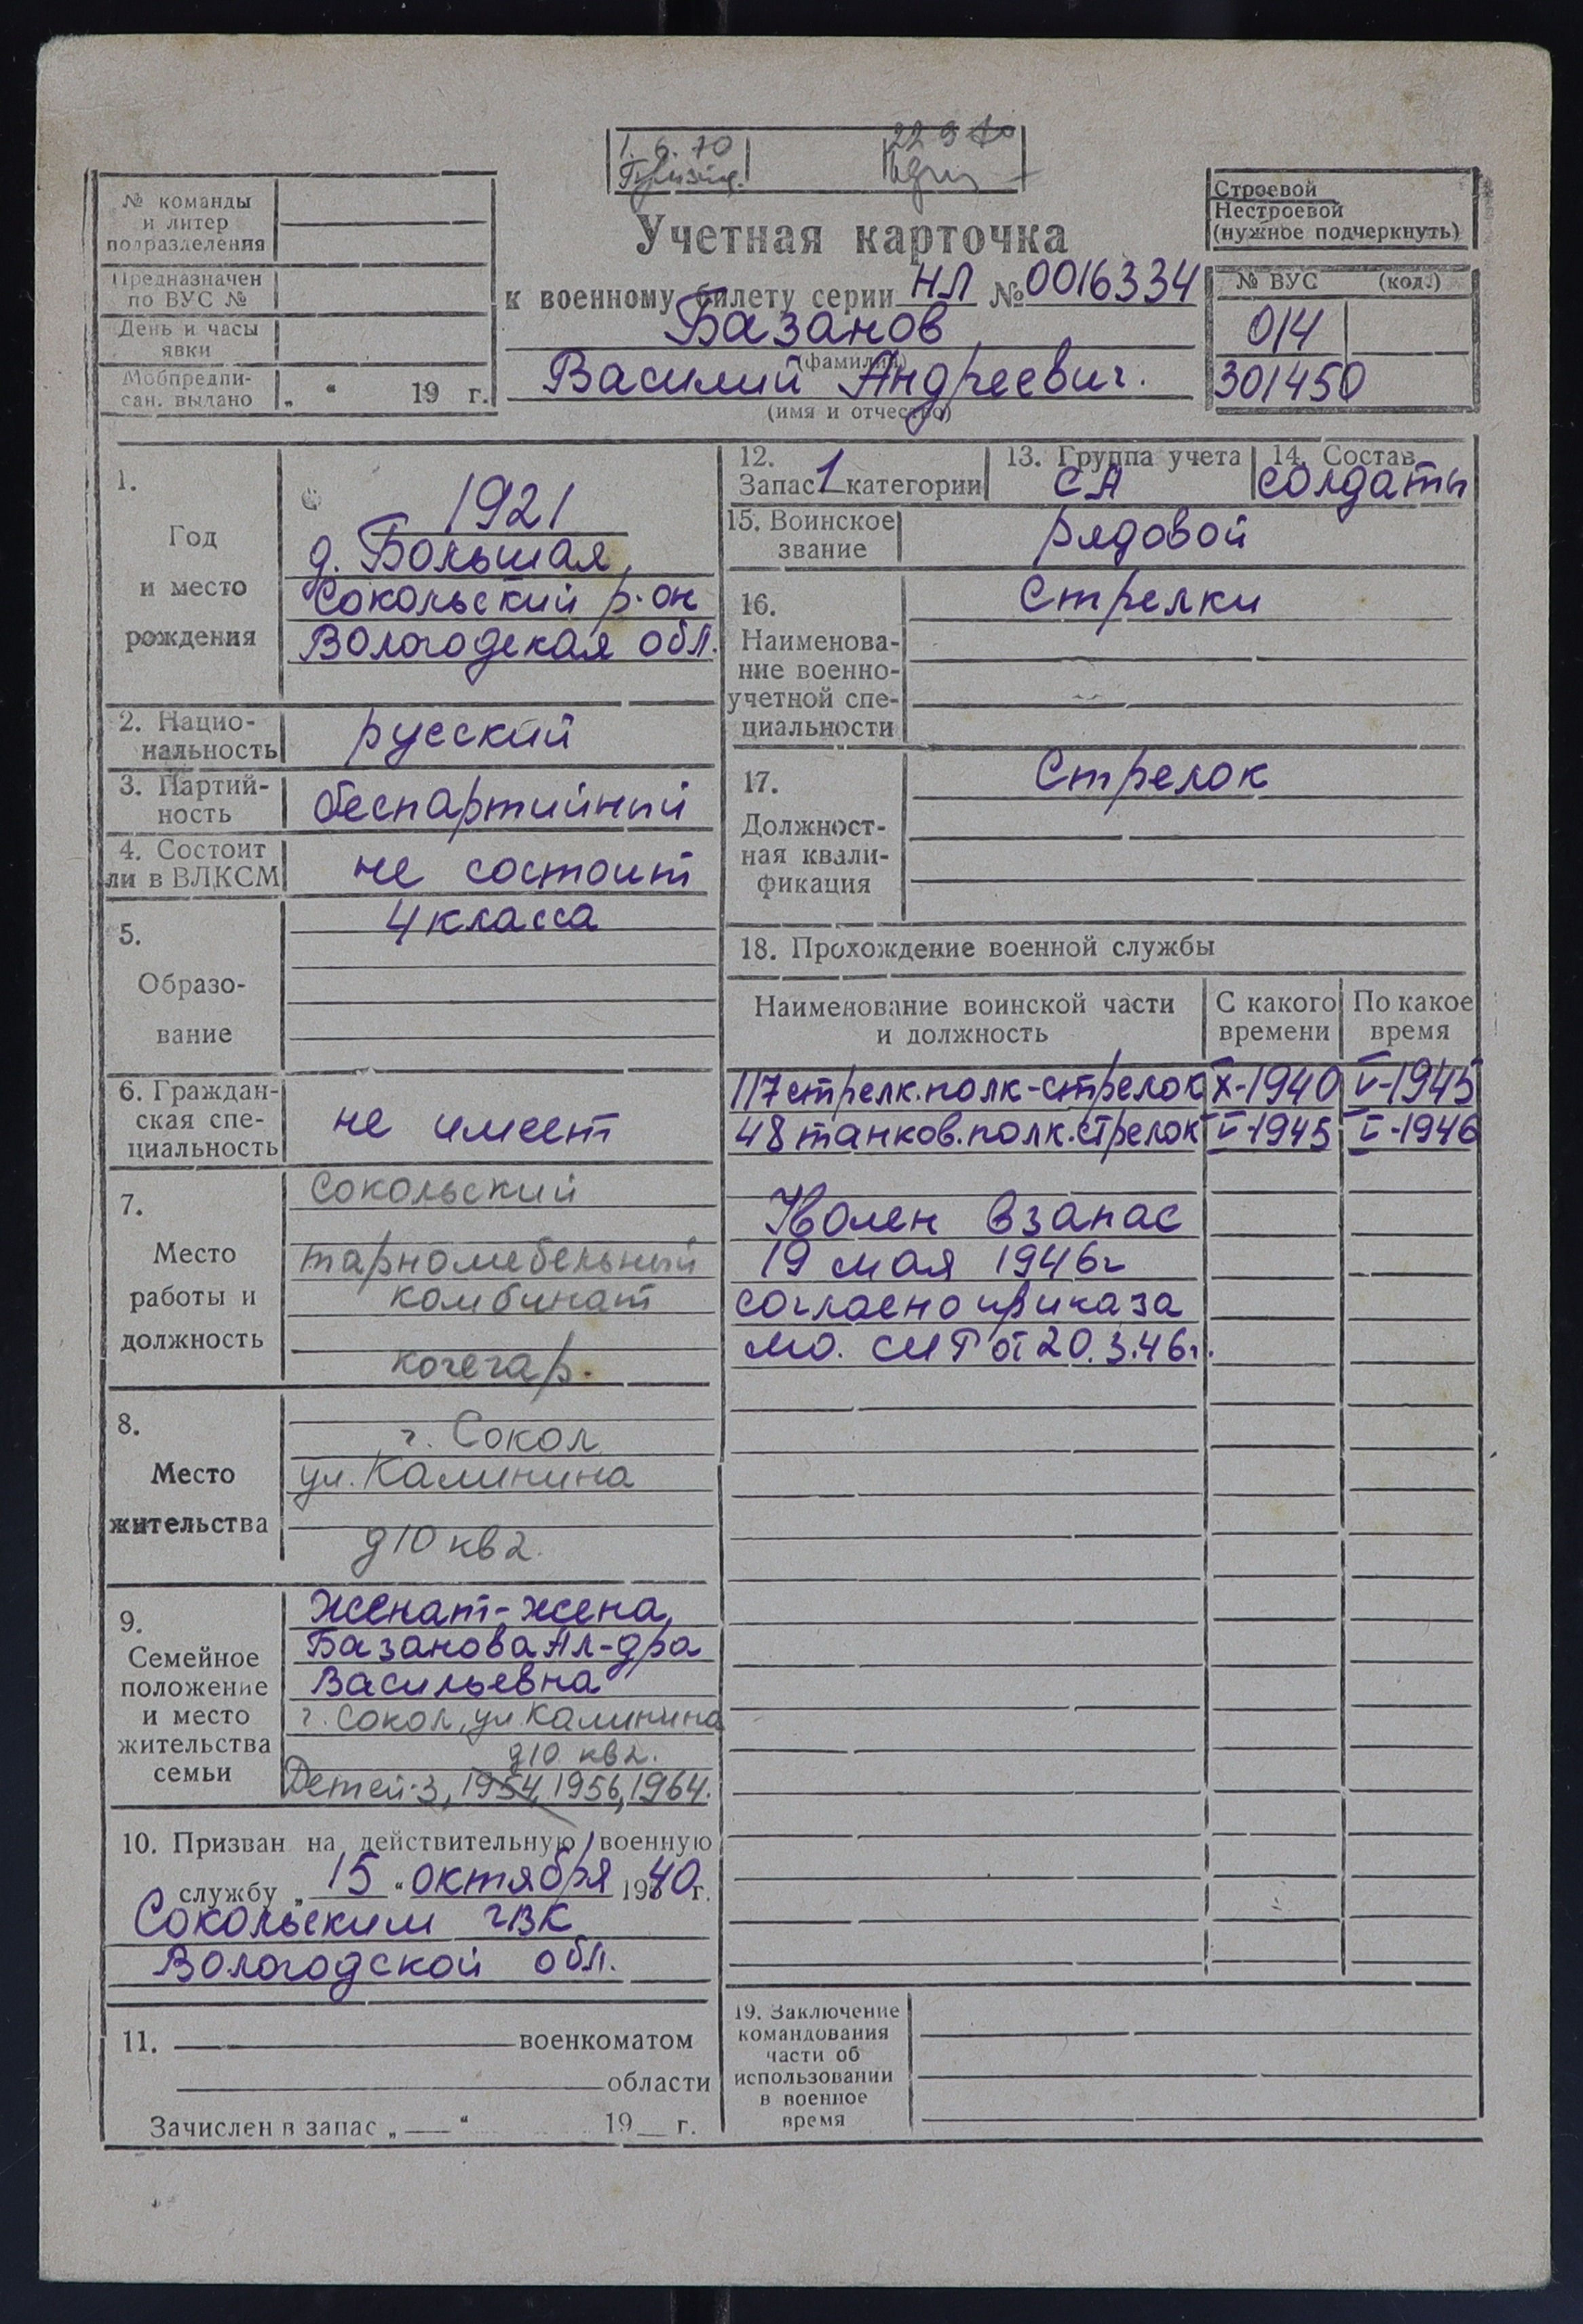 1. 6. 70
22 9 70
№ команды
и литер
подразделения
Предназначен
по ВУС №
День и часы
явки
Мобпредпи-
сан. выдано „ “ 19 г.
Учетная карточка
к военному билету серии НЛ № 0016334
Базанов
(фамилия)
Василий Андреевич.
(имя и отчество)
Строевой
Нестроевой
(нужное подчеркнуть)
№ ВУС (код.)
014
301450
1.
Год
и место
рождения
1921
д. Большая,
Сокольский р-он
Вологодская обл.
2. Нацио-
нальность
русский
3. Партий-
ность
беспартийный
4. Состоит
ли в ВЛКСМ
не состоит
5.
Образо-
вание
4 класса
6. Граждан-
ская спе-
циальность
не имеет
7.
Место
работы и
должность
Сокольский
тарномебельный
комбинат
кочегар.
8.
Место
жительства
г. Сокол
ул. Калинина
д 10 кв 2.
9.
Семейное
положение
и место
жительства
семьи
Женат-жена,
Базанова Ал-дра
Васильевна
г. Сокол, ул Калинина
д10 кв 2.
Детей-3, 1954, 1956, 1964.
10. Призван на действительную военную
службу „ 15 “ октября 1940 г.
Сокольским ГВК
Вологодской обл.
11. военкоматом
области
Зачислен в запас „ “ 19 г.
12.
Запас 1 категории
13. Группа учета
СА
14. Состав
солдаты
15. Воинское
звание
рядовой
16.
Наименова-
ние военно-
учетной спе-
циальности
Стрелки
17.
Должност-
ная квали-
фикация
Стрелок
18. Прохождение военной службы
Наименование воинской части
и должность
С какого
времени
По какое
время
117 стрелк.полк-стрелок X-1940 V-1945
48 танков.полк.стрелок V-1945 V-1946
Уволен в запас
19 мая 1946г
согласно приказа
МО. СМР от 20.3.46г.
19. Заключение
командования
части об
использовании
в военное
время